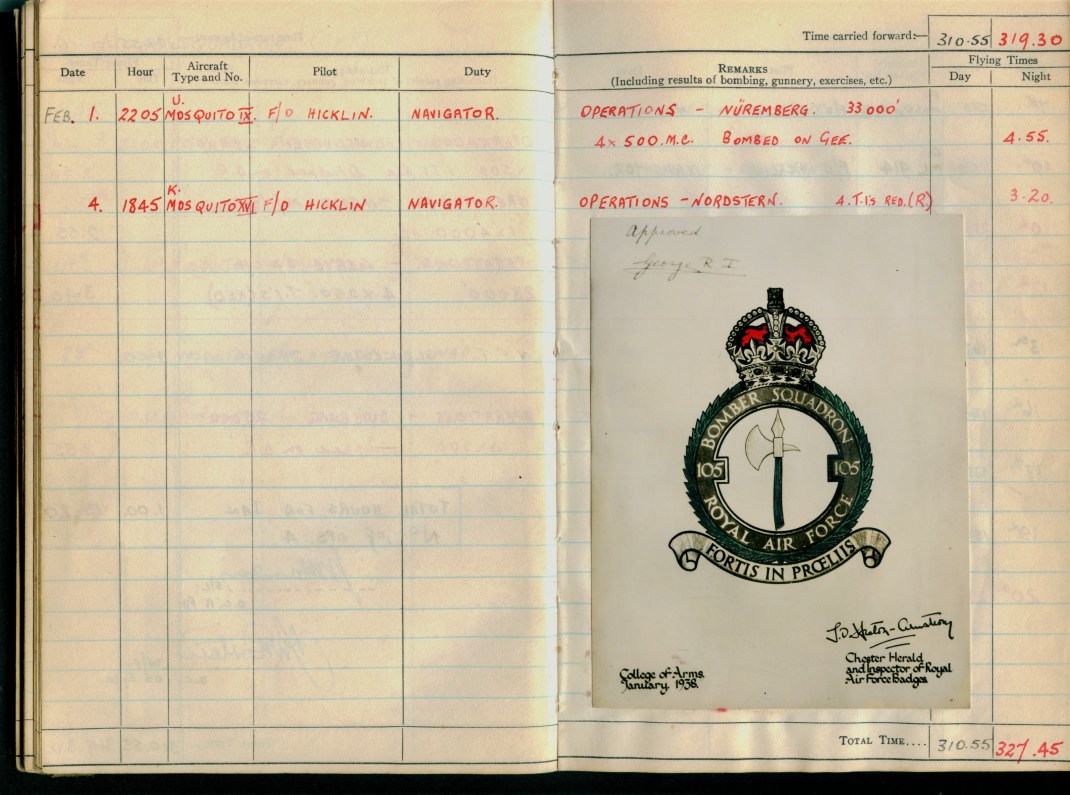 Time carried forward:— 310.55 319.30
Date Hour Aircraft Type and No. Pilot Duty REMARKS (Including results of bombing, gunnery, exercises, etc.) Flying Times Day Night
FEB. 1. 2205 U. MOSQUITO IX. F/O HICKLIN. NAVIGATOR. OPERATIONS - NÜREMBERG. 33000'
4 x 500. M.C. BOMBED ON GEE. 4.55.
4. 1845 K. MOSQUITO XVI F/O HICKLIN NAVIGATOR. OPERATIONS - NORDSTERN. 4. T.I's RED. (R) 3.20.
Approved
George R.I
BOMBER SQUADRON
105 105
ROYAL AIR FORCE
FORTIS IN PRŒLIIS
College of Arms,
January, 1938.
Chester Herald
and Inspector of Royal
Air Force Badges
TOTAL TIME.... 310.55 327.45